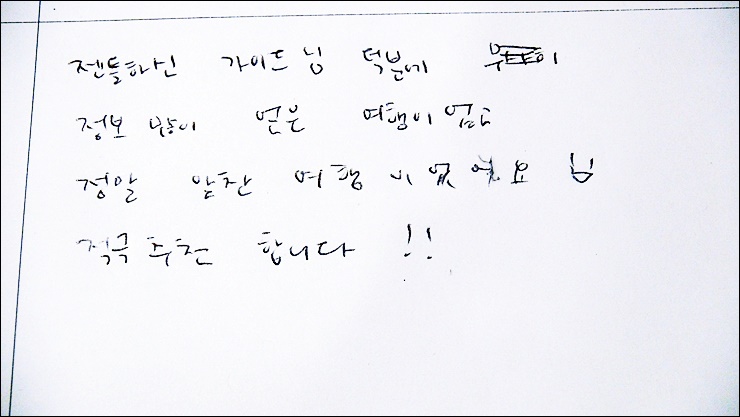 젠틀하신 가이드님 덕분에
정보 많이 얻은 여행이었고
정말 알찬 여행이었어요
적극추천 합니다 !!